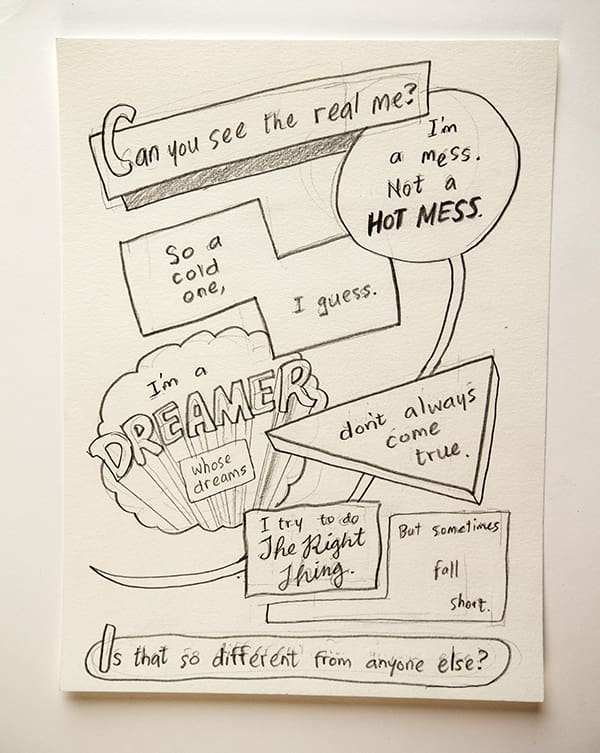 Can you see the real me?
I'm
a mess.
Not a
HOT MESS.
So a
cold
one,
I guess.
I'm a
DREAMER
whose
dreams
don't always
come
true.
I try to do
The Right
Thing.
But sometimes
fall
short.
Is that so different from anyone else?